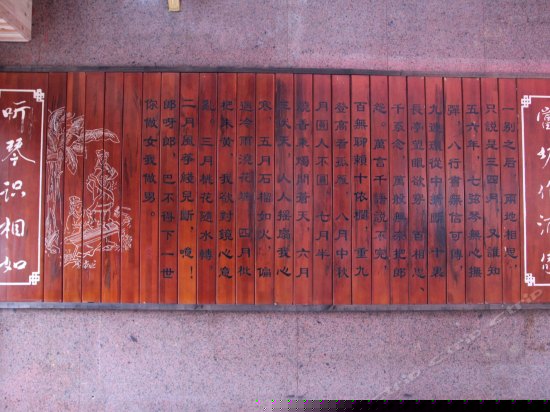 當垆
一别之后，兩地相思，
只説是三四月，又誰知
五六年，七弦琴無心撫
彈，八行書無信可傳，
九連環從中折斷，十裏
長亭望眼欲穿，百相思，
千系念，萬般無奈把郎
怨。萬言千語説不完，
百無聊賴十依欄，重九
登高看孤雁，八月中秋
月圓人不圓，七月半
燒香秉燭問蒼天，六月
三伏天，人人摇扇我心
寒，五月石榴如火，偏
遇冷雨澆花端，四月枇
杷未黄，我欲對鏡心意
亂。三月桃花隨水轉
二月風筝綫兒斷，噫！
郎呀郎，巴不得下一世
你做女我做男。
听琴识相如